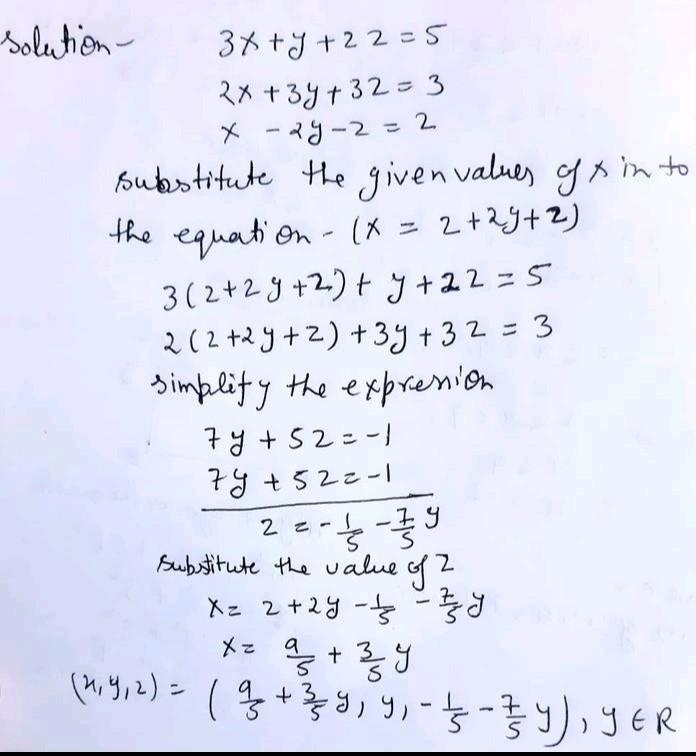 Solution- 3x + y + 2z = 5
2x + 3y + 3z = 3
x - 2y - z = 2
substitute the given values of x in to
the equation - (x = 2 + 2y + z)
3(2 + 2y + z) + y + 2z = 5
2(2 + 2y + z) + 3y + 3z = 3
simplify the expression
7y + 5z = -1
7y + 5z = -1
z = -1/5 - 7/5 y
substitute the value of z
x = 2 + 2y - 1/5 - 7/5 y
x = 9/5 + 3/5 y
(x, y, z) = (9/5 + 3/5 y, y, -1/5 - 7/5 y), y ∈ R